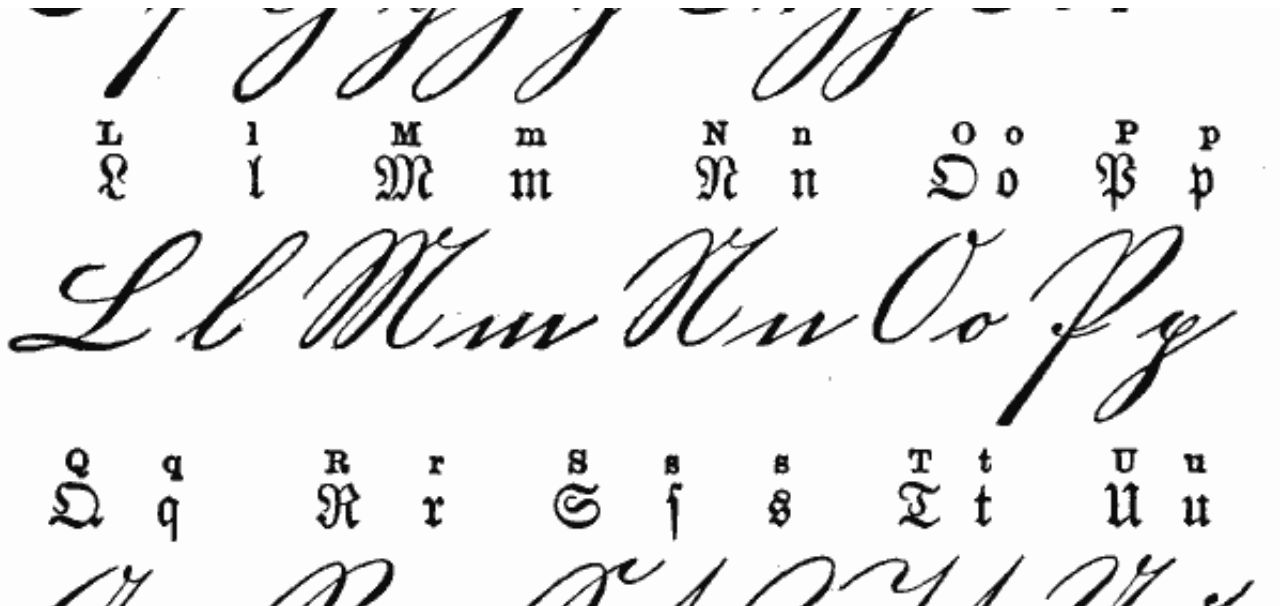 L l M m N n O o P p
𝔏 𝔩 𝔐 𝔪 𝔑 𝔫 𝔒 𝔬 𝔓 𝔭
L l M m N n O o P p
Q q R r S s s T t U u
𝔔 𝔮 ℜ 𝔯 𝔖 ſ 𝔰 𝔗 𝔱 𝔘 𝔲